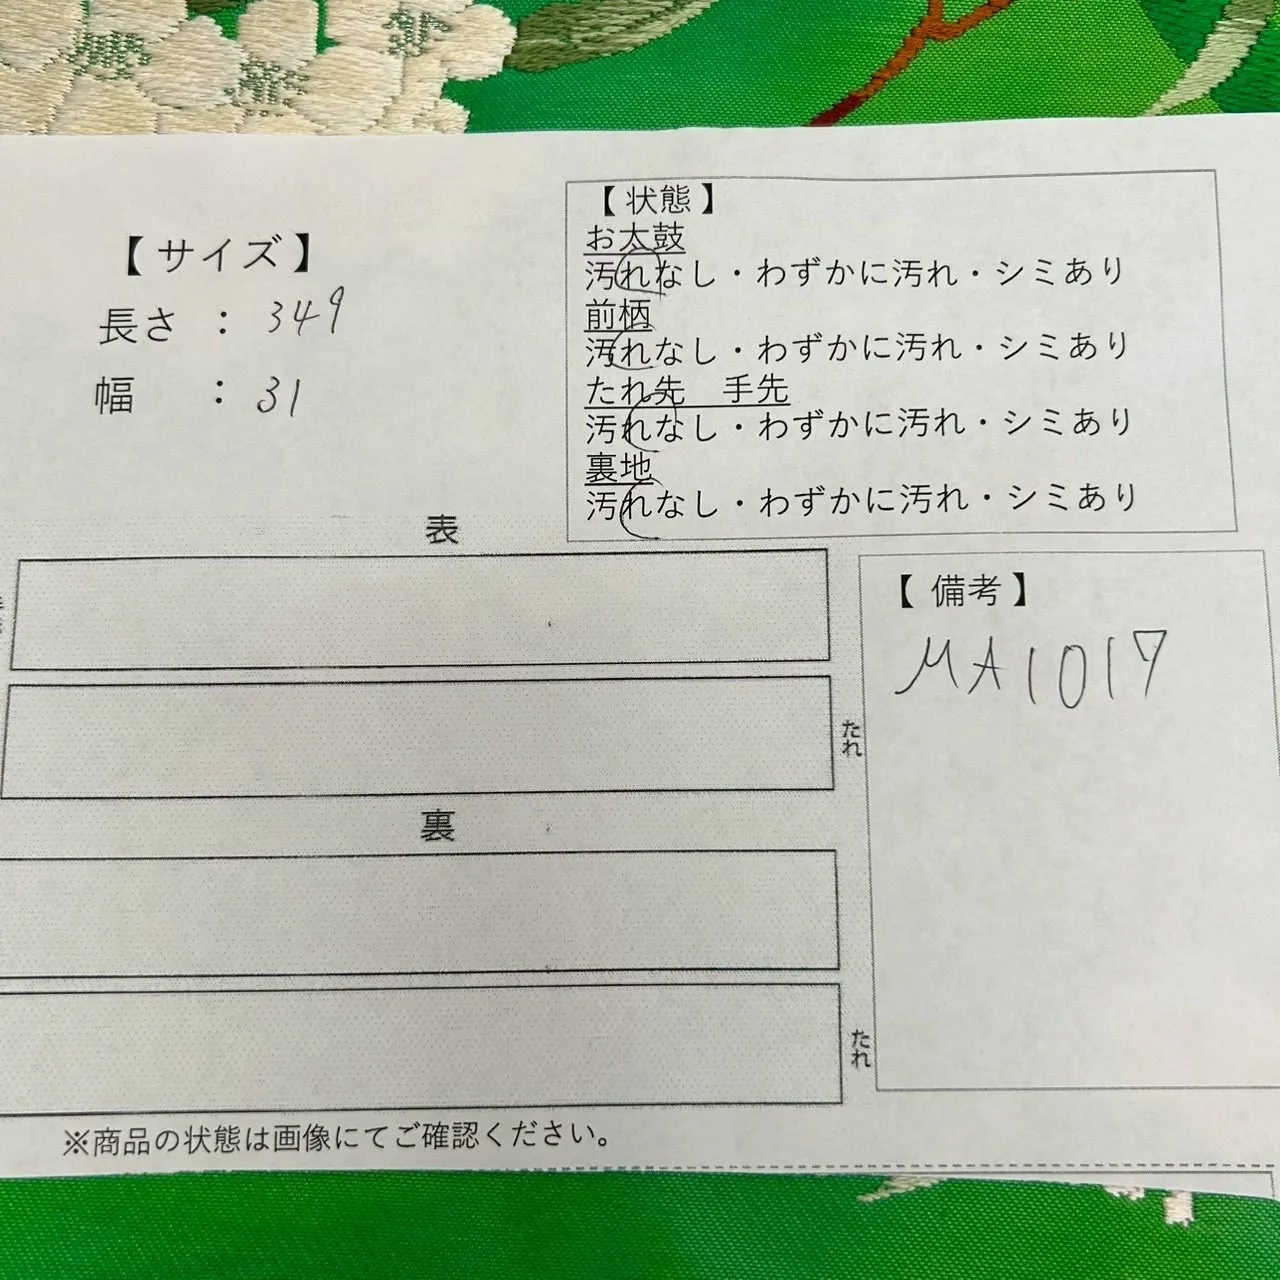 【サイズ】
長さ : 349
幅 : 31
【状態】
お太鼓
汚れなし・わずかに汚れ・シミあり
前柄
汚れなし・わずかに汚れ・シミあり
たれ先 手先
汚れなし・わずかに汚れ・シミあり
裏地
汚れなし・わずかに汚れ・シミあり
表
たれ
裏
たれ
【備考】
MA1017
※商品の状態は画像にてご確認ください。